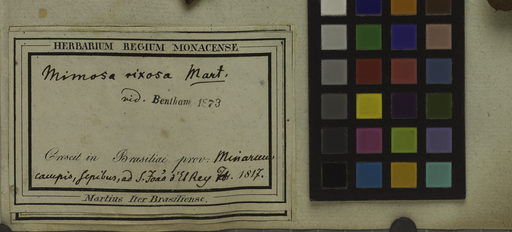 HERBARIUM REGIUM MONACENSE
Mimosa rixosa Mart.
vid. Bentham 1873
Crescit in Brasiliae prov: Minarum
campis, sepibus, ad S. João d'El Rey 1817.
Martius Iter Brasiliense.